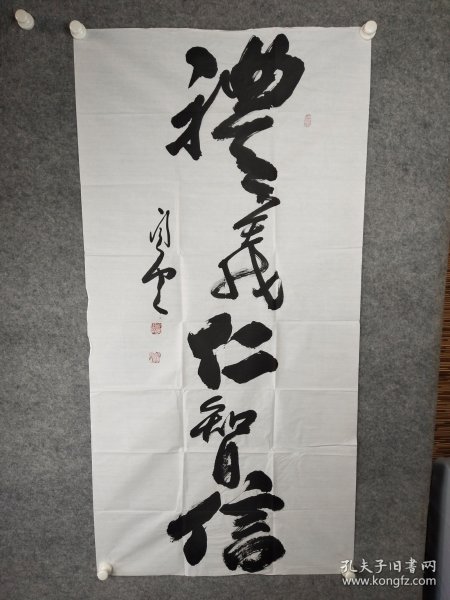 禮義仁智信
孔夫子旧书网
www.kongfz.com